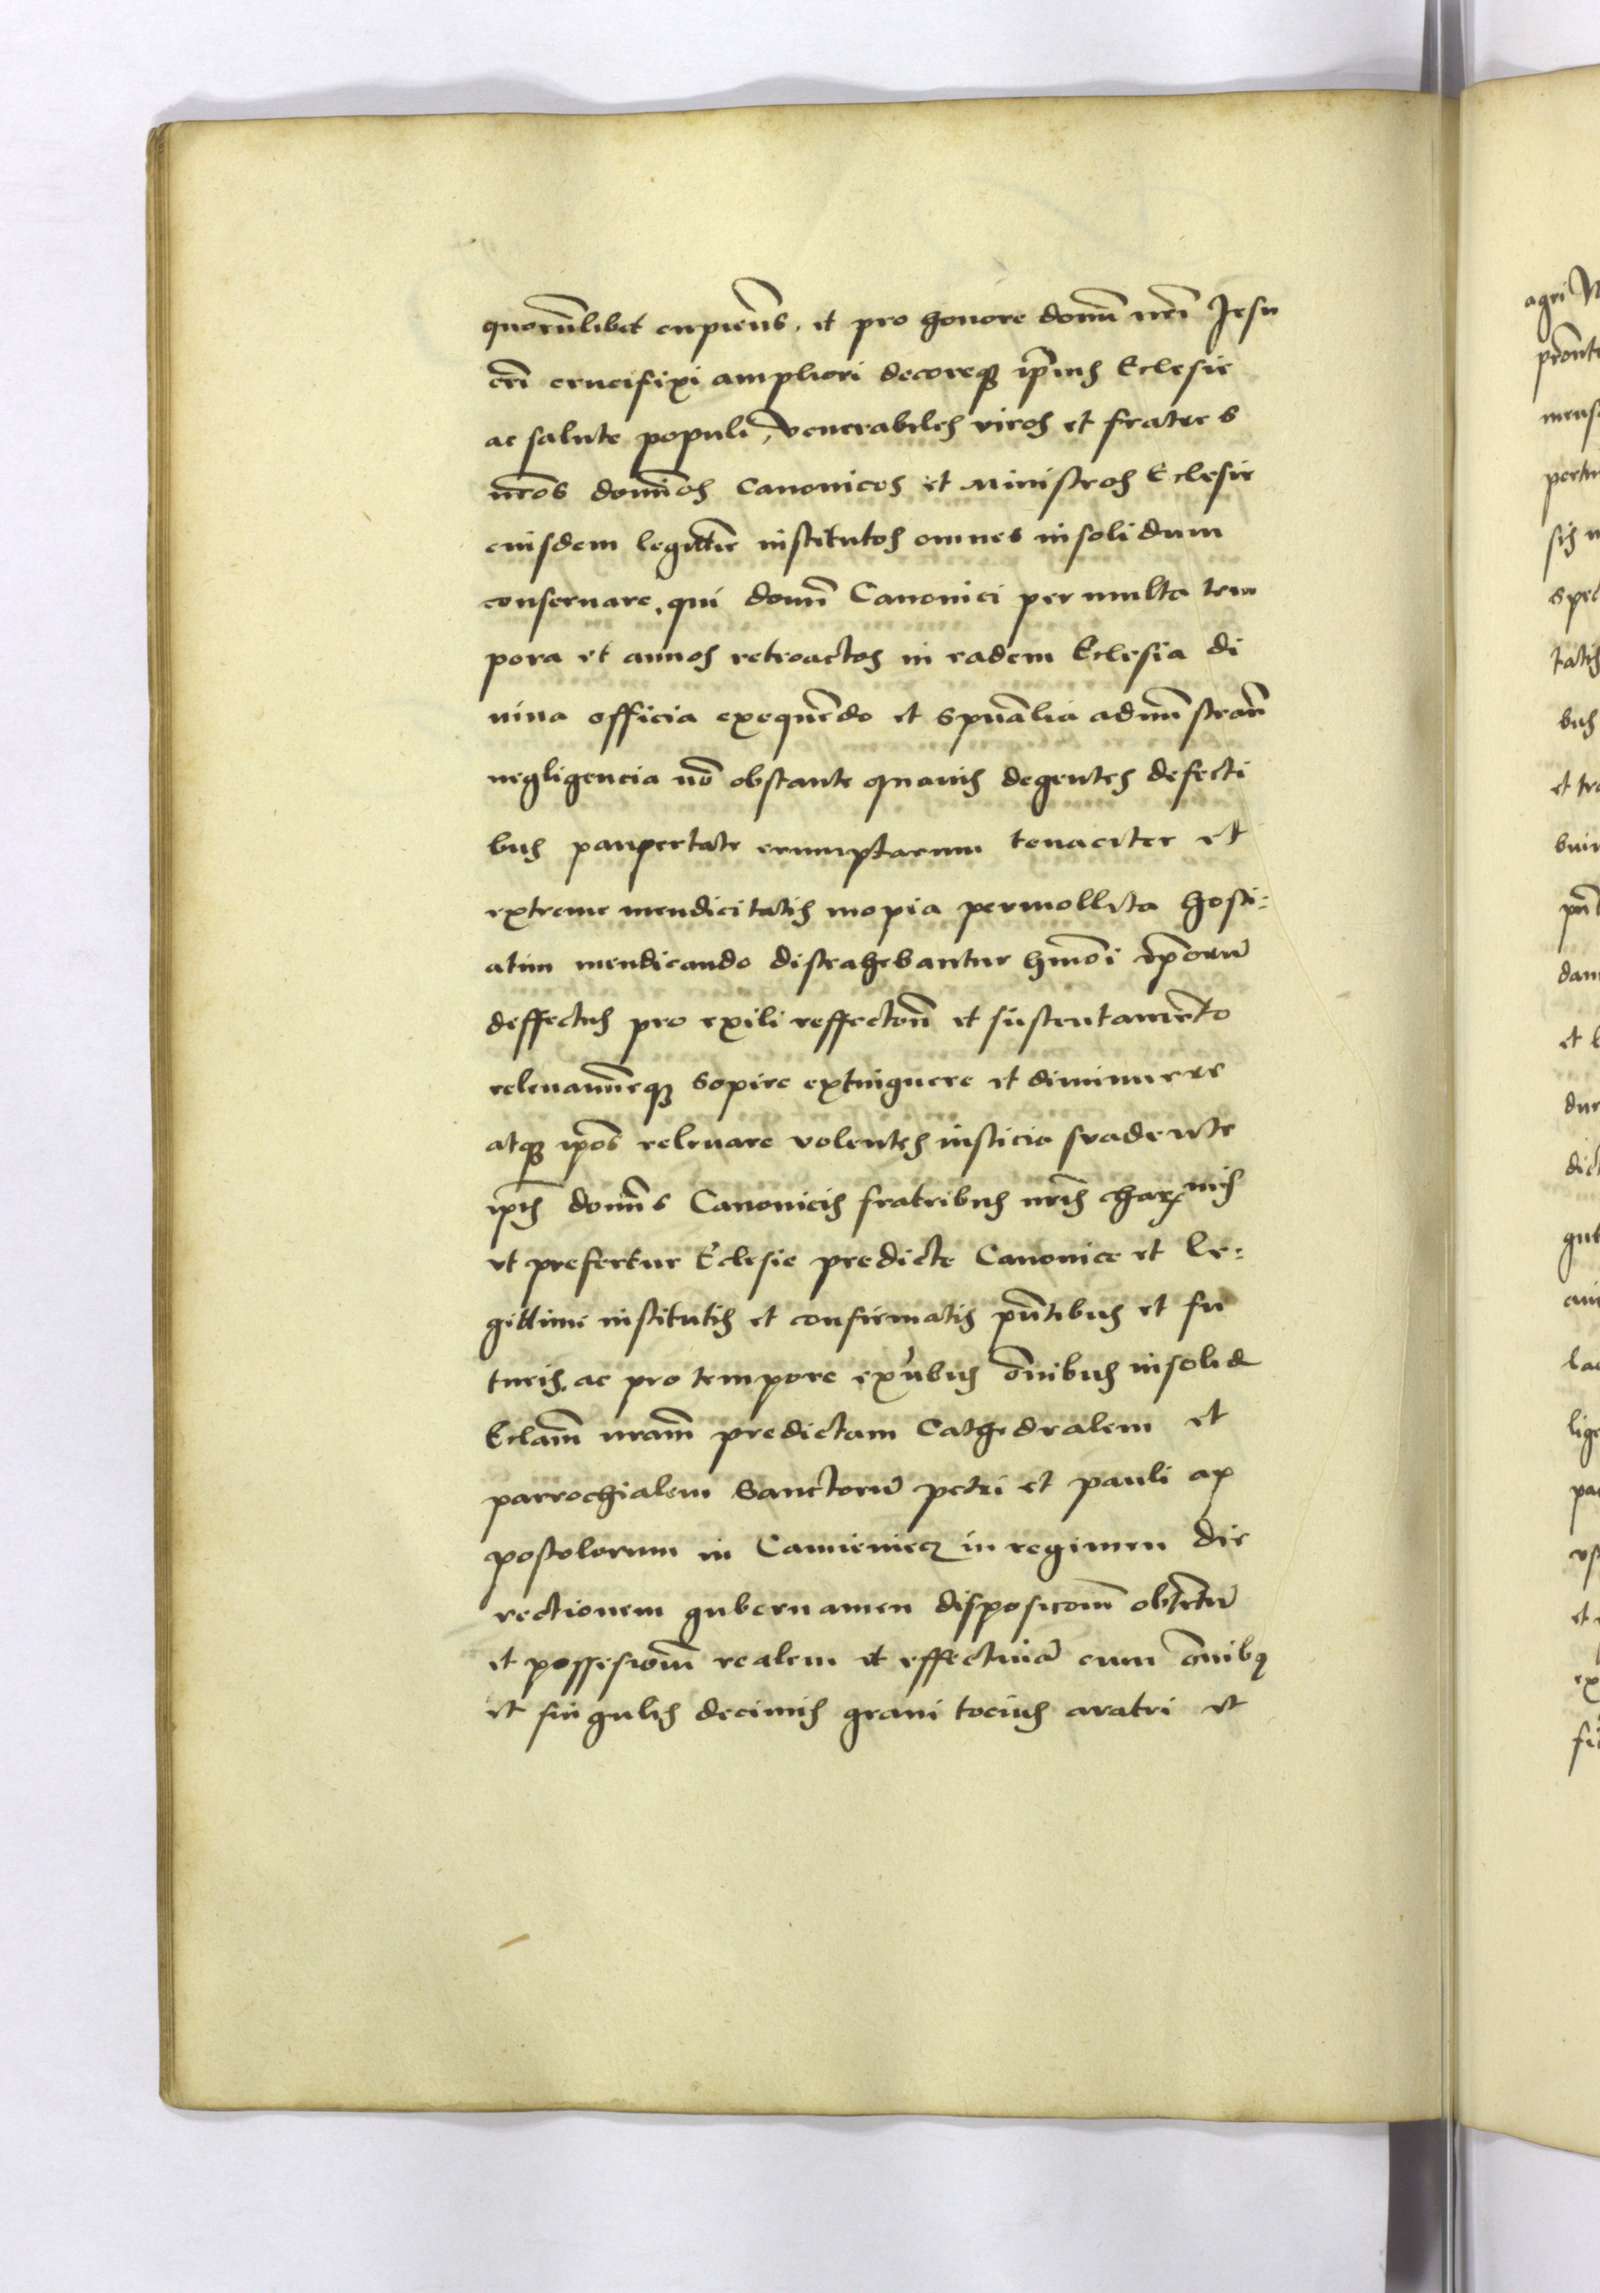 quorūlibet cupiens, et pro honore domī nrī Jesu
crī crucifixi ampliori decoreqꝫ ipius Eclesie
ac salute populi, Venerabiles viros et fratres
nros domīos Canonicos et Ministros Eclesie
euisdem legittie institutos omnes insolidum
conseruare, qui domī Canonici per multa tem
pora et annos retroactos in eadem Eclesia di
uina officia exequēdo et spūalia admīstran̄
negligencia nō obstante quauis degentes defecti
bus paupertate erumptarum tenaciter et
extreme mendicitatis inopia permollita hosti:
atim mendicando distrahebantur hmōi ip̄orū
deffectus pro exili reffectōn et sustentamēto
releuamīeqꝫ sopire extinguere et diminuere
atqꝫ ipōs releuare volentes iusticia suadente
ipīs domīs Canonicis fratribus nrīs charmis
vt prefertur Eclesie predicte Canonice et le:
gittime institutis et confirmatis pūtibus et fu
turis, ac pro tempore exūbus ōnibus insolid
Eclām nrām predictam Cathedralem et
parrochialem Sanctorū petri et pauli ap
postolorum in Camieniecz in regimen die
rectionem gubernamen disposicōm obtētū
et possesiōm realem et effectiuā cum ōnibꝫ
et singulis decimis grani tocius aratri et
agri